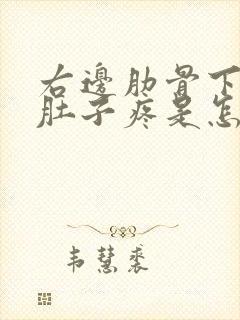 右邊肋骨下
肚子疼是怎
韦慧裘